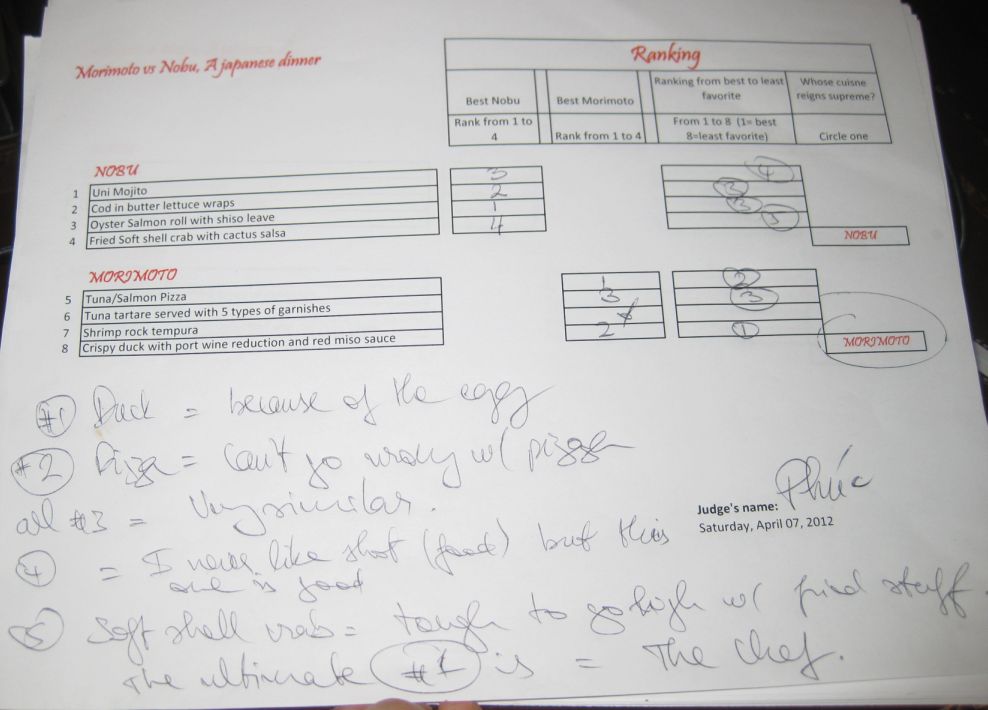 Morimoto vs Nobu, A japanese dinner
Ranking
Best Nobu
Best Morimoto
Ranking from best to least favorite
Whose cuisne reigns supreme?
Rank from 1 to 4
Rank from 1 to 4
From 1 to 8 (1= best 8=least favorite)
Circle one
NOBU
1 Uni Mojito 3 4
2 Cod in butter lettuce wraps 2 3
3 Oyster Salmon roll with shiso leave 1 3
4 Fried Soft shell crab with cactus salsa 4 5
NOBU
MORIMOTO
5 Tuna/Salmon Pizza 1 2
6 Tuna tartare served with 5 types of garnishes 3 3
7 Shrimp rock tempura
8 Crispy duck with port wine reduction and red miso sauce 2 1
MORIMOTO
#1 Duck = because of the egg
#2 Pizza = Can't go wrong w/ pizza
all #3 = Very similar.
4 = I never like shot (food) but this
one is good
5 Soft shell crab = tough to go high w/ fried stuff.
The ultimate #1 is = The chef.
Judge's name: Phúc
Saturday, April 07, 2012